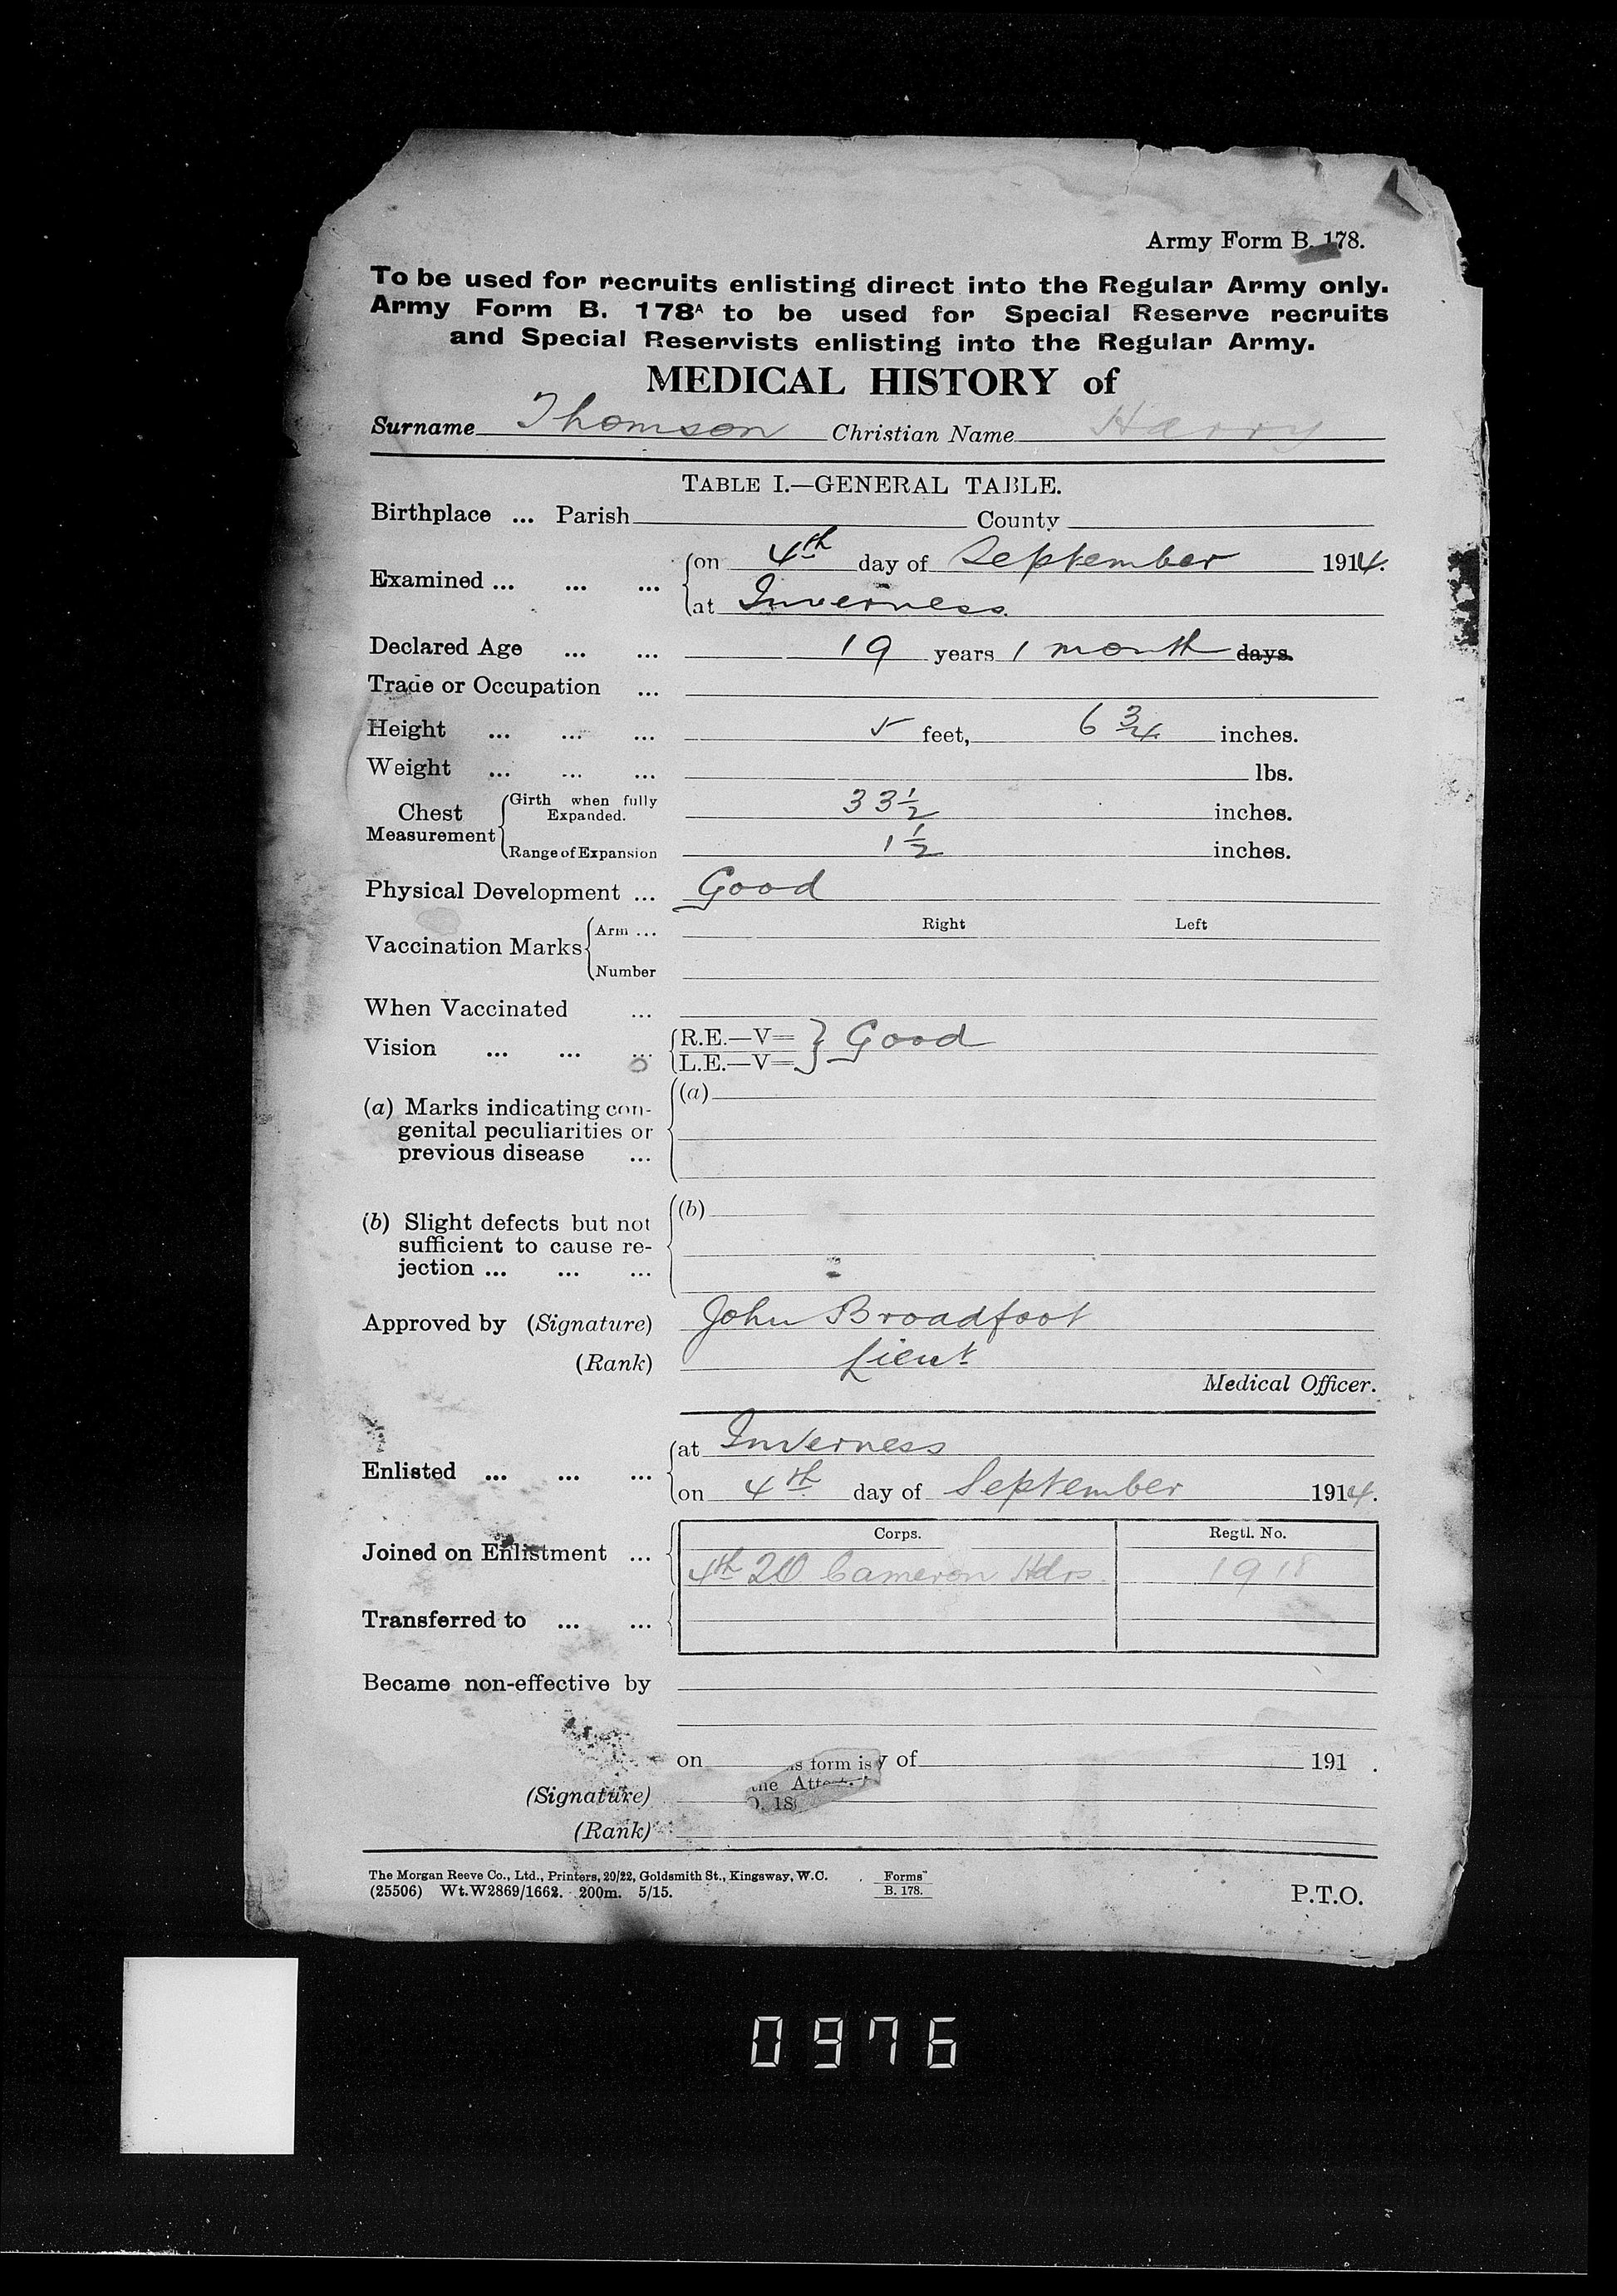 Army Form B. 178.
To be used for recruits enlisting direct into the Regular Army only.
Army Form B. 178A to be used for Special Reserve recruits
and Special Reservists enlisting into the Regular Army.
MEDICAL HISTORY of
Surname Thomson Christian Name Harry
TABLE I.—GENERAL TABLE.
Birthplace ... Parish County
Examined ... ... ... on 4th day of September 1914.
at Inverness
Declared Age ... ... 19 years 1 month days.
Trade or Occupation ...
Height ... ... ... 5 feet, 6 3/4 inches.
Weight ... ... ... lbs.
Chest Measurement Girth when fully Expanded. 33 1/2 inches.
Range of Expansion 1 1/2 inches.
Physical Development ... Good
Right Left
Vaccination Marks Arm ...
Number
When Vaccinated ...
Vision ... ... ... R.E.—V= } Good
L.E.—V=
(a) Marks indicating con- (a)
genital peculiarities or
previous disease ...
(b) Slight defects but not (b)
sufficient to cause re-
jection ... ... ...
Approved by (Signature) John Broadfoot
(Rank) Lieut
Medical Officer.
Enlisted ... ... ... at Inverness
on 4th day of September 1914.
Corps. Regtl. No.
Joined on Enlistment ... 4th Cameron Hdrs. 1918
Transferred to ... ...
Became non-effective by
on s form is y of 191 .
the Att
(Signature) 18
(Rank)
The Morgan Reeve Co., Ltd., Printers, 20/22, Goldsmith St., Kingsway, W.C. Forms
(25506) Wt.W2869/1662. 200m. 5/15. B. 178.
P.T.O.
0976